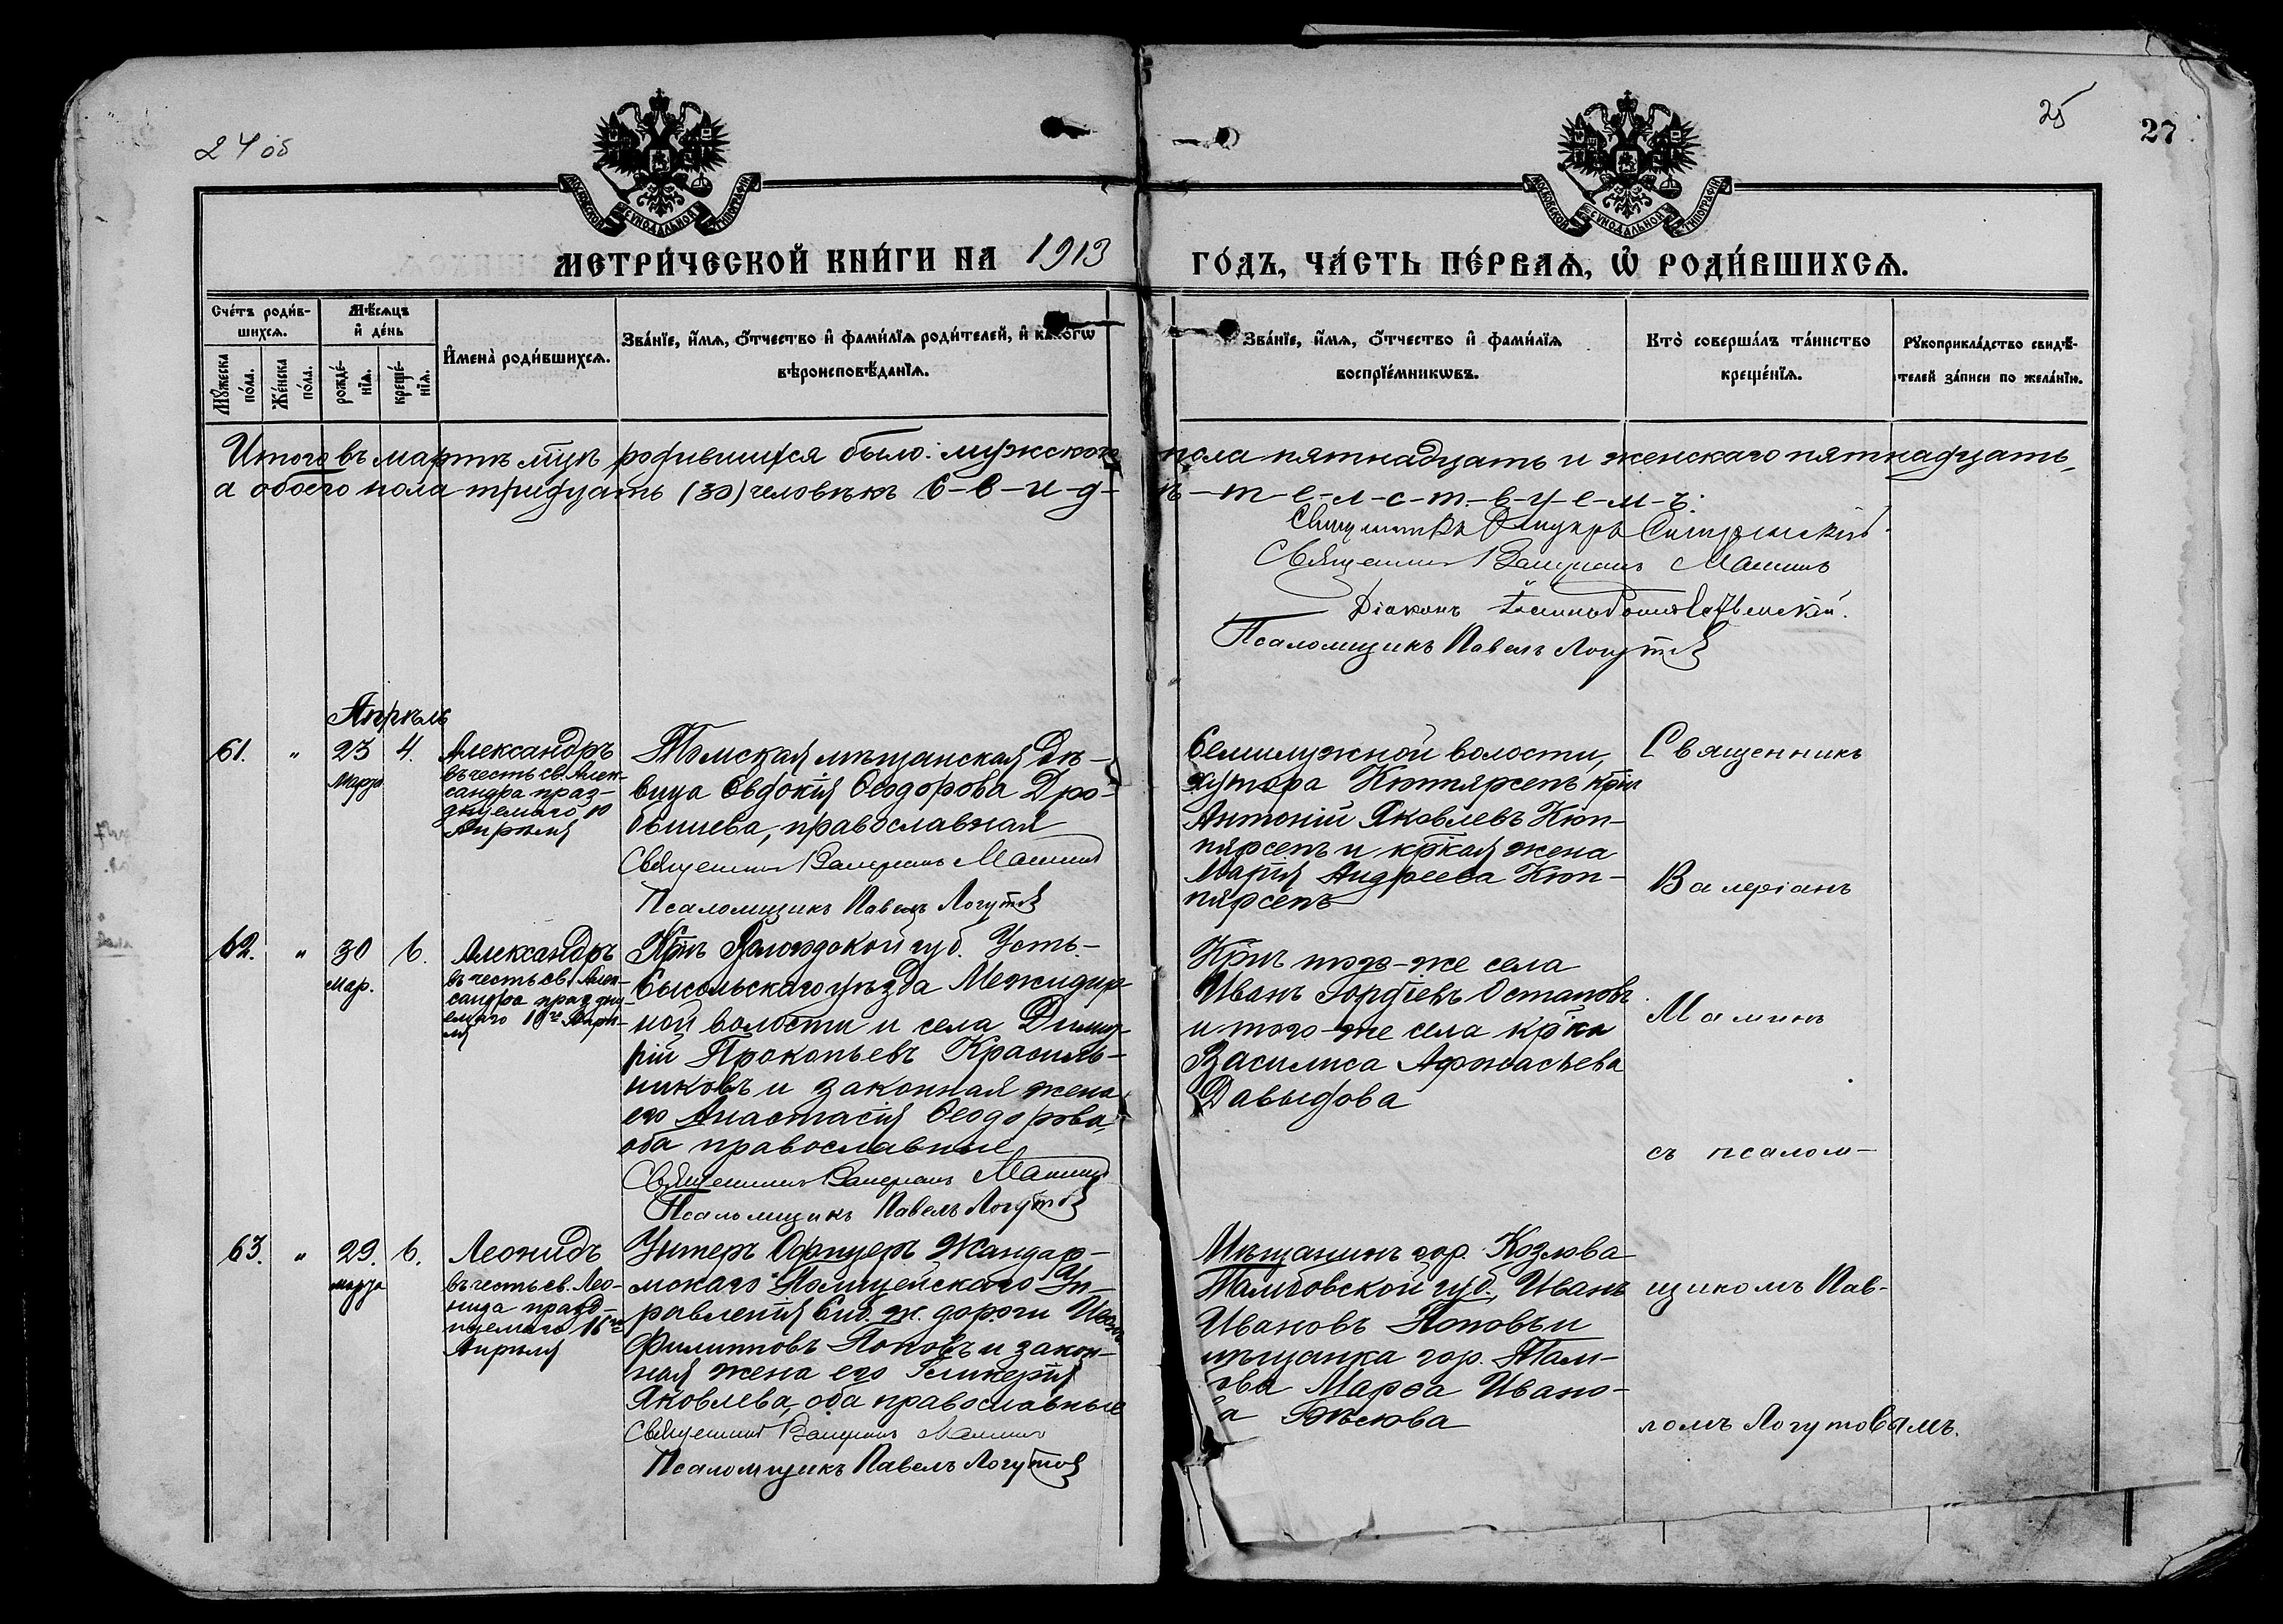 24 об
25
27
МОСКОВСКОЙ СѴНОДАЛЬНОЙ ТИПОГРАФІИ
МОСКОВСКОЙ СѴНОДАЛЬНОЙ ТИПОГРАФІИ
МЕТРИ́ЧЕСКОЙ КНИ́ГИ НА 1913 ГО́ДЪ, ЧА́СТЬ ПЕ́РВАѦ, Ѡ҆ РОДИ́ВШИХСѦ.
Сче́тъ роди́в-
шихсѧ.
Мꙋ́жеска по́ла.
Же́нска по́ла.
Мѣ́сѧцъ
и҆ де́нь
рожде́-
нїѧ.
креще́-
нїѧ.
И҆мена̀ роди́вшихсѧ.
Зва́нїе, и҆́мѧ, ѻ҆́тчество и҆ фами́лїѧ роди́телей, и҆ како́гѡ
вѣроисповѣ́данїѧ.
Зва́нїе, и҆́мѧ, ѻ҆́тчество и҆ фами́лїѧ
воспрїе́мникѡвъ.
Кто̀ соверша́лъ та́инство
креще́нїѧ.
Рꙋкоприкла́дство свидѣ́-
телей за́писи по жела́нїю.
Итого въ мартѣ мцѣ родившихся было: мужского пола пятнадцать и женскаго пятнадцать,
а обоего пола тридцать (30) человѣкъ С-в-и-д-ѣ-т-е-л-с-т-в-у-е-м-ъ.
Священникъ
Священникъ Валеріанъ Маминъ
Діаконъ
Псаломщикъ Павелъ Логутовъ
Апрѣль
61. " 23 4.
Марта
Александръ
въ честь св. Алек-
сандра праз-
днуемаго 10
Апрѣля
Томская мѣщанская дѣ-
вица Евдокія Ѳеодорова Дро-
бышева, православная
Священникъ Валеріанъ Маминъ
Псаломщикъ Павелъ Логутовъ
Семилужной волости,
хутора Кюпярсепъ крн
Антоній Яковлевъ Кюп-
пярсепъ и кр̃кая жена
Марія Андреева Кюп-
пярсепъ
Священникъ
Валеріанъ
62. " 30 6.
мар.
Александръ
въ честь св. Алек-
сандра праздну-
емаго 10го Апрѣ-
ля
Крнъ Вологодской губ. Усть-
Сысольскаго уѣзда Межадор
ной волости и села Димит-
рій Прокопьевъ Красиль-
никовъ и законная жена
его Анастасія Ѳеодорова,
оба православные
Священникъ Валеріанъ Маминъ
Псаломщикъ Павелъ Логутовъ
Крнъ того-же села
Иванъ Гордіевъ Остаповъ
и того-же села кр̃ка
Василиса Афонасьева
Давыдова
Маминъ
съ псалом-
63. " 29. 6.
марта
Леонидъ
въ честь св. Лео-
нида празд-
нуемаго 16го
Апрѣля
Унтеръ Офицеръ Жандар-
мскаго Полицейскаго Уп-
равленія Сиб. ж. дороги Иванъ
Филипповъ Поповъ и закон-
ная жена его Гликерія
Яковлева, оба православные
Священникъ Валеріанъ Маминъ
Псаломщикъ Павелъ Логутовъ
Мѣщанинъ гор. Козлова
Тамбовской губ. Иванъ
Ивановъ Поповъ и
мѣщанка гор. Там-
ва Марѳа Ивано-
ва Бѣлова
щикомъ Пав-
ломъ Логутовымъ.